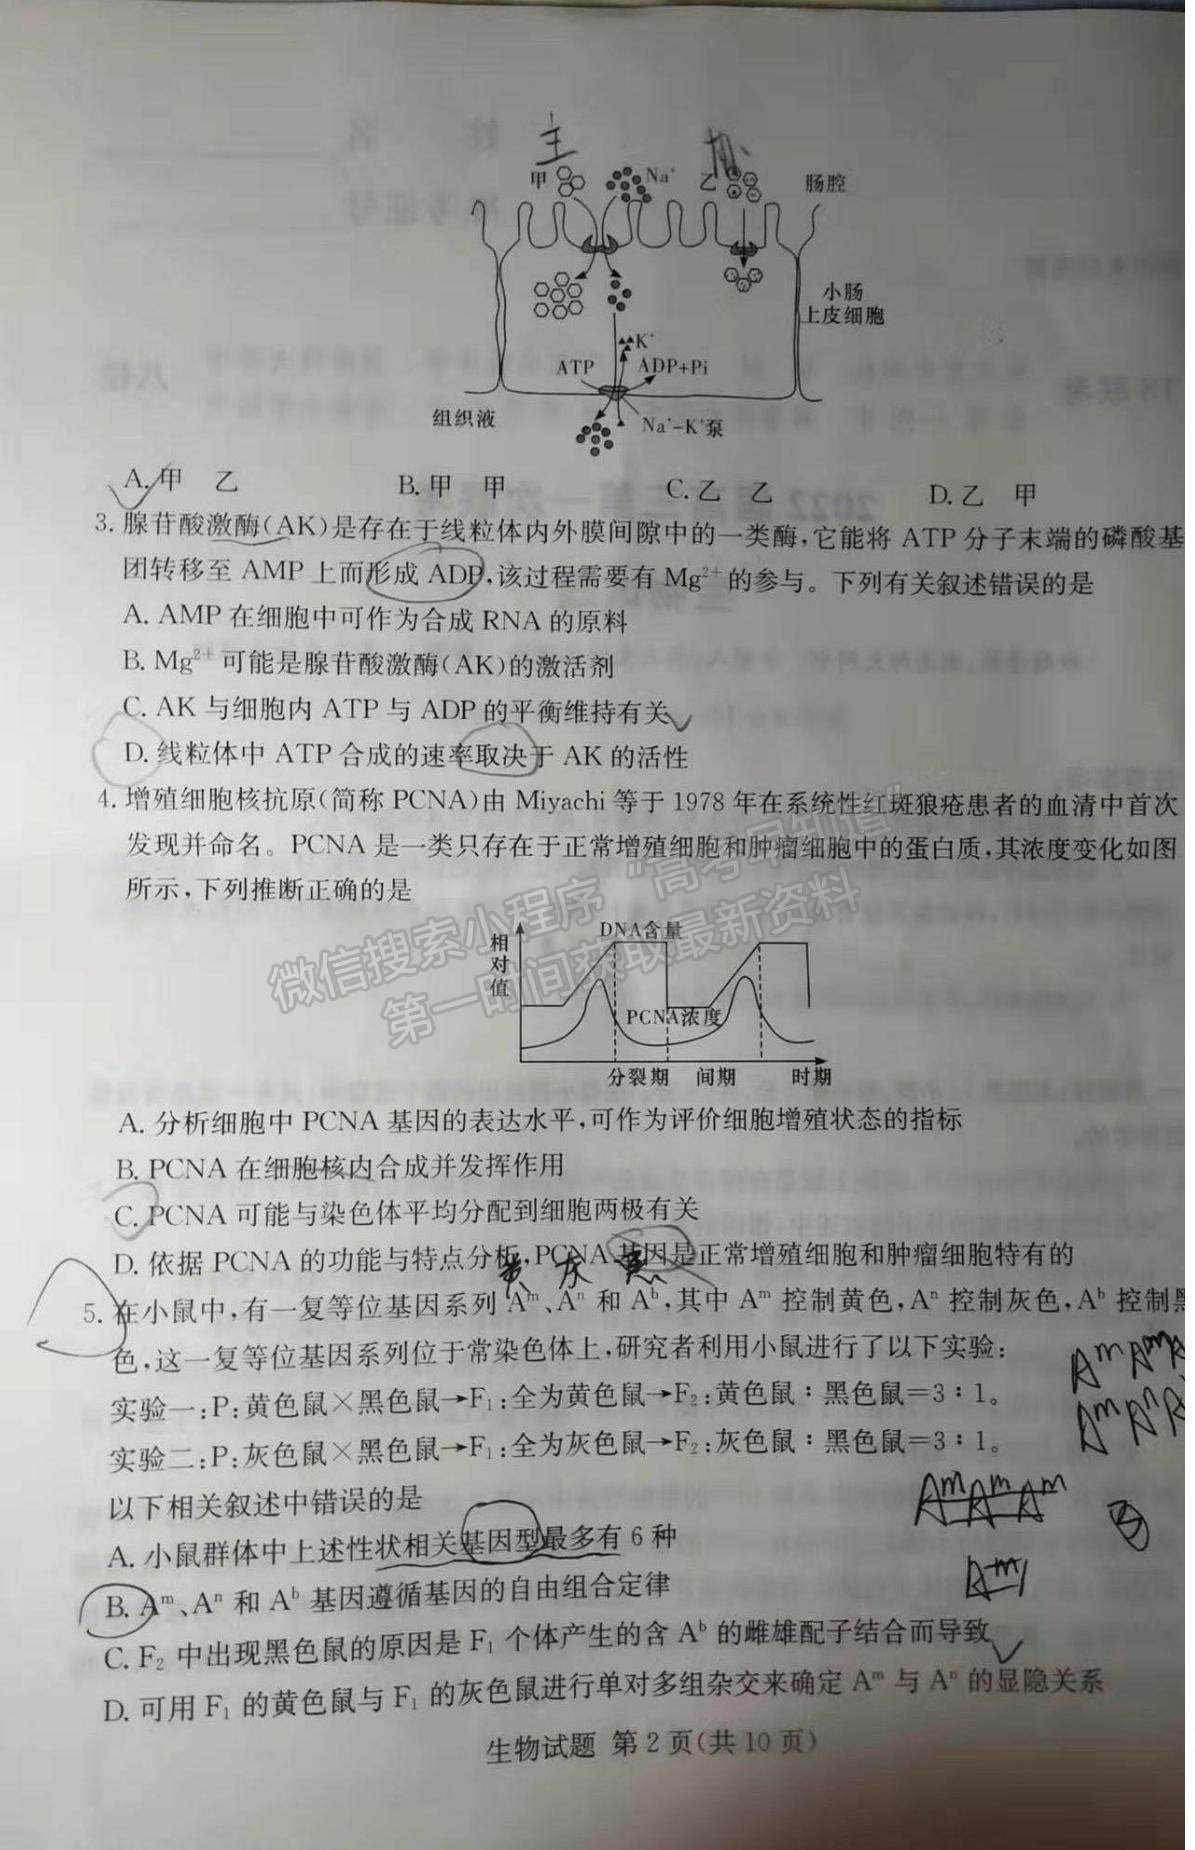 主
协
甲
Na⁺
乙
肠腔
小肠
上皮细胞
K⁺
ATP
ADP+Pi
组织液
Na⁺-K⁺泵
A. 甲 乙 B. 甲 甲 C. 乙 乙 D. 乙 甲
3. 腺苷酸激酶(AK)是存在于线粒体内外膜间隙中的一类酶,它能将 ATP 分子末端的磷酸基
团转移至 AMP 上而形成 ADP,该过程需要有 Mg²⁺ 的参与。下列有关叙述错误的是
A. AMP 在细胞中可作为合成 RNA 的原料
B. Mg²⁺ 可能是腺苷酸激酶(AK)的激活剂
C. AK 与细胞内 ATP 与 ADP 的平衡维持有关
D. 线粒体中 ATP 合成的速率取决于 AK 的活性
4. 增殖细胞核抗原(简称 PCNA)由 Miyachi 等于 1978 年在系统性红斑狼疮患者的血清中首次
发现并命名。PCNA 是一类只存在于正常增殖细胞和肿瘤细胞中的蛋白质,其浓度变化如图
所示,下列推断正确的是
微信搜索小程序“高考早知道”
第一时间获取最新资料
相对值
DNA含量
PCNA浓度
分裂期 间期 时期
A. 分析细胞中 PCNA 基因的表达水平,可作为评价细胞增殖状态的指标
B. PCNA 在细胞核内合成并发挥作用
C. PCNA 可能与染色体平均分配到细胞两极有关
D. 依据 PCNA 的功能与特点分析,PCNA 基因是正常增殖细胞和肿瘤细胞特有的
黄 灰 黑
5. 在小鼠中,有一复等位基因系列 Aᵐ、Aⁿ 和 Aᵇ,其中 Aᵐ 控制黄色,Aⁿ 控制灰色,Aᵇ 控制黑
色,这一复等位基因系列位于常染色体上,研究者利用小鼠进行了以下实验:
实验一:P:黄色鼠×黑色鼠→F₁:全为黄色鼠→F₂:黄色鼠∶黑色鼠=3∶1。
实验二:P:灰色鼠×黑色鼠→F₁:全为灰色鼠→F₂:灰色鼠∶黑色鼠=3∶1。
以下相关叙述中错误的是
A. 小鼠群体中上述性状相关基因型最多有 6 种
B. Aᵐ、Aⁿ 和 Aᵇ 基因遵循基因的自由组合定律
C. F₂ 中出现黑色鼠的原因是 F₁ 个体产生的含 Aᵇ 的雌雄配子结合而导致
D. 可用 F₁ 的黄色鼠与 F₁ 的灰色鼠进行单对多组杂交来确定 Aᵐ 与 Aⁿ 的显隐关系
Aᵐ Aᵐ Aᵐ
生物试题 第 2 页(共 10 页)